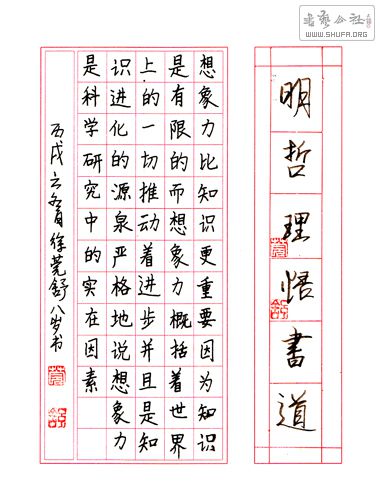 書藝公社
WWW.SHUFA.ORG
明哲理悟書道
想象力比知识更重要因为知识
是有限的而想象力概括着世界
上的一切推动着进步并且是知
识进化的源泉严格地说想象力
是科学研究中的实在因素
丙戌之冬月徐莞舒八岁书